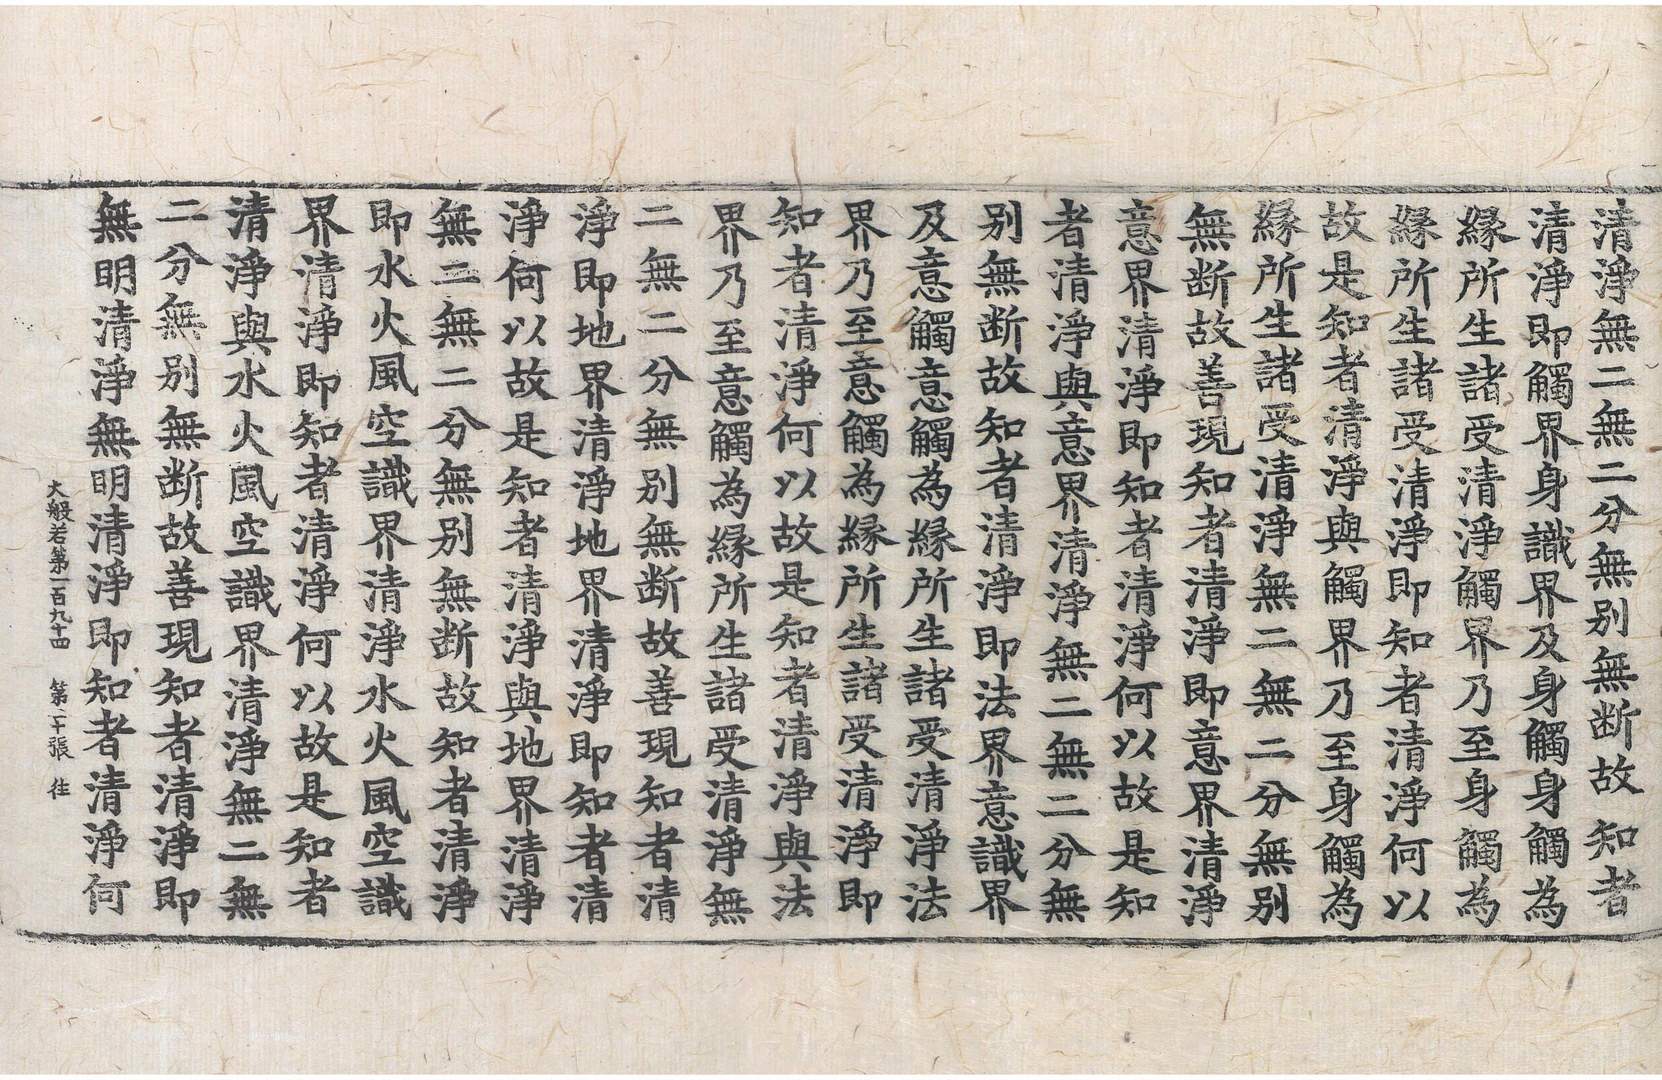 清淨無二無二分無别無断故知者
清淨即觸界身識界及身觸身觸為
縁所生諸受清淨觸界乃至身觸為
縁所生諸受清淨即知者清淨何以
故是知者清淨與觸界乃至身觸為
縁所生諸受清淨無二無二分無别
無断故善現知者清淨即意界清淨
意界清淨即知者清淨何以故是知
者清淨與意界清淨無二無二分無
别無断故知者清淨即法界意識界
及意觸意觸為縁所生諸受清淨法
界乃至意觸為縁所生諸受清淨即
知者清淨何以故是知者清淨與法
界乃至意觸為縁所生諸受清淨無
二無二分無别無断故善現知者清
淨即地界清淨地界清淨即知者清
淨何以故是知者清淨與地界清淨
無二無二分無别無断故知者清淨
即水火風空識界清淨水火風空識
界清淨即知者清淨何以故是知者
清淨與水火風空識界清淨無二無
二分無别無断故善現知者清淨即
無明清淨無明清淨即知者清淨何
大般若第一百九十四 第二十張 往